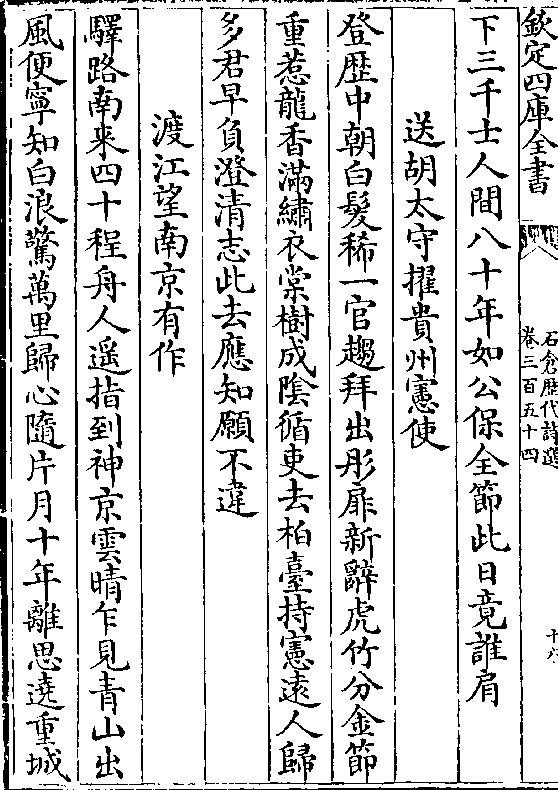 欽定四庫全書
石倉歷代詩選
卷三百五十四
十六
下三千士人間八十年如公保全節此日竟誰肩
送胡太守擢貴州憲使
登歷中朝白髮稀一官趨拜出彤扉新辭虎竹分金節
重惹龍香滿繡衣棠樹成陰循吏去柏臺持憲遠人歸
多君早負澄清志此去應知願不違
渡江望南京有作
驛路南來四十程舟人遥指到神京雲晴乍見青山出
風便寧知白浪驚萬里歸心隨片月十年離思遶重城